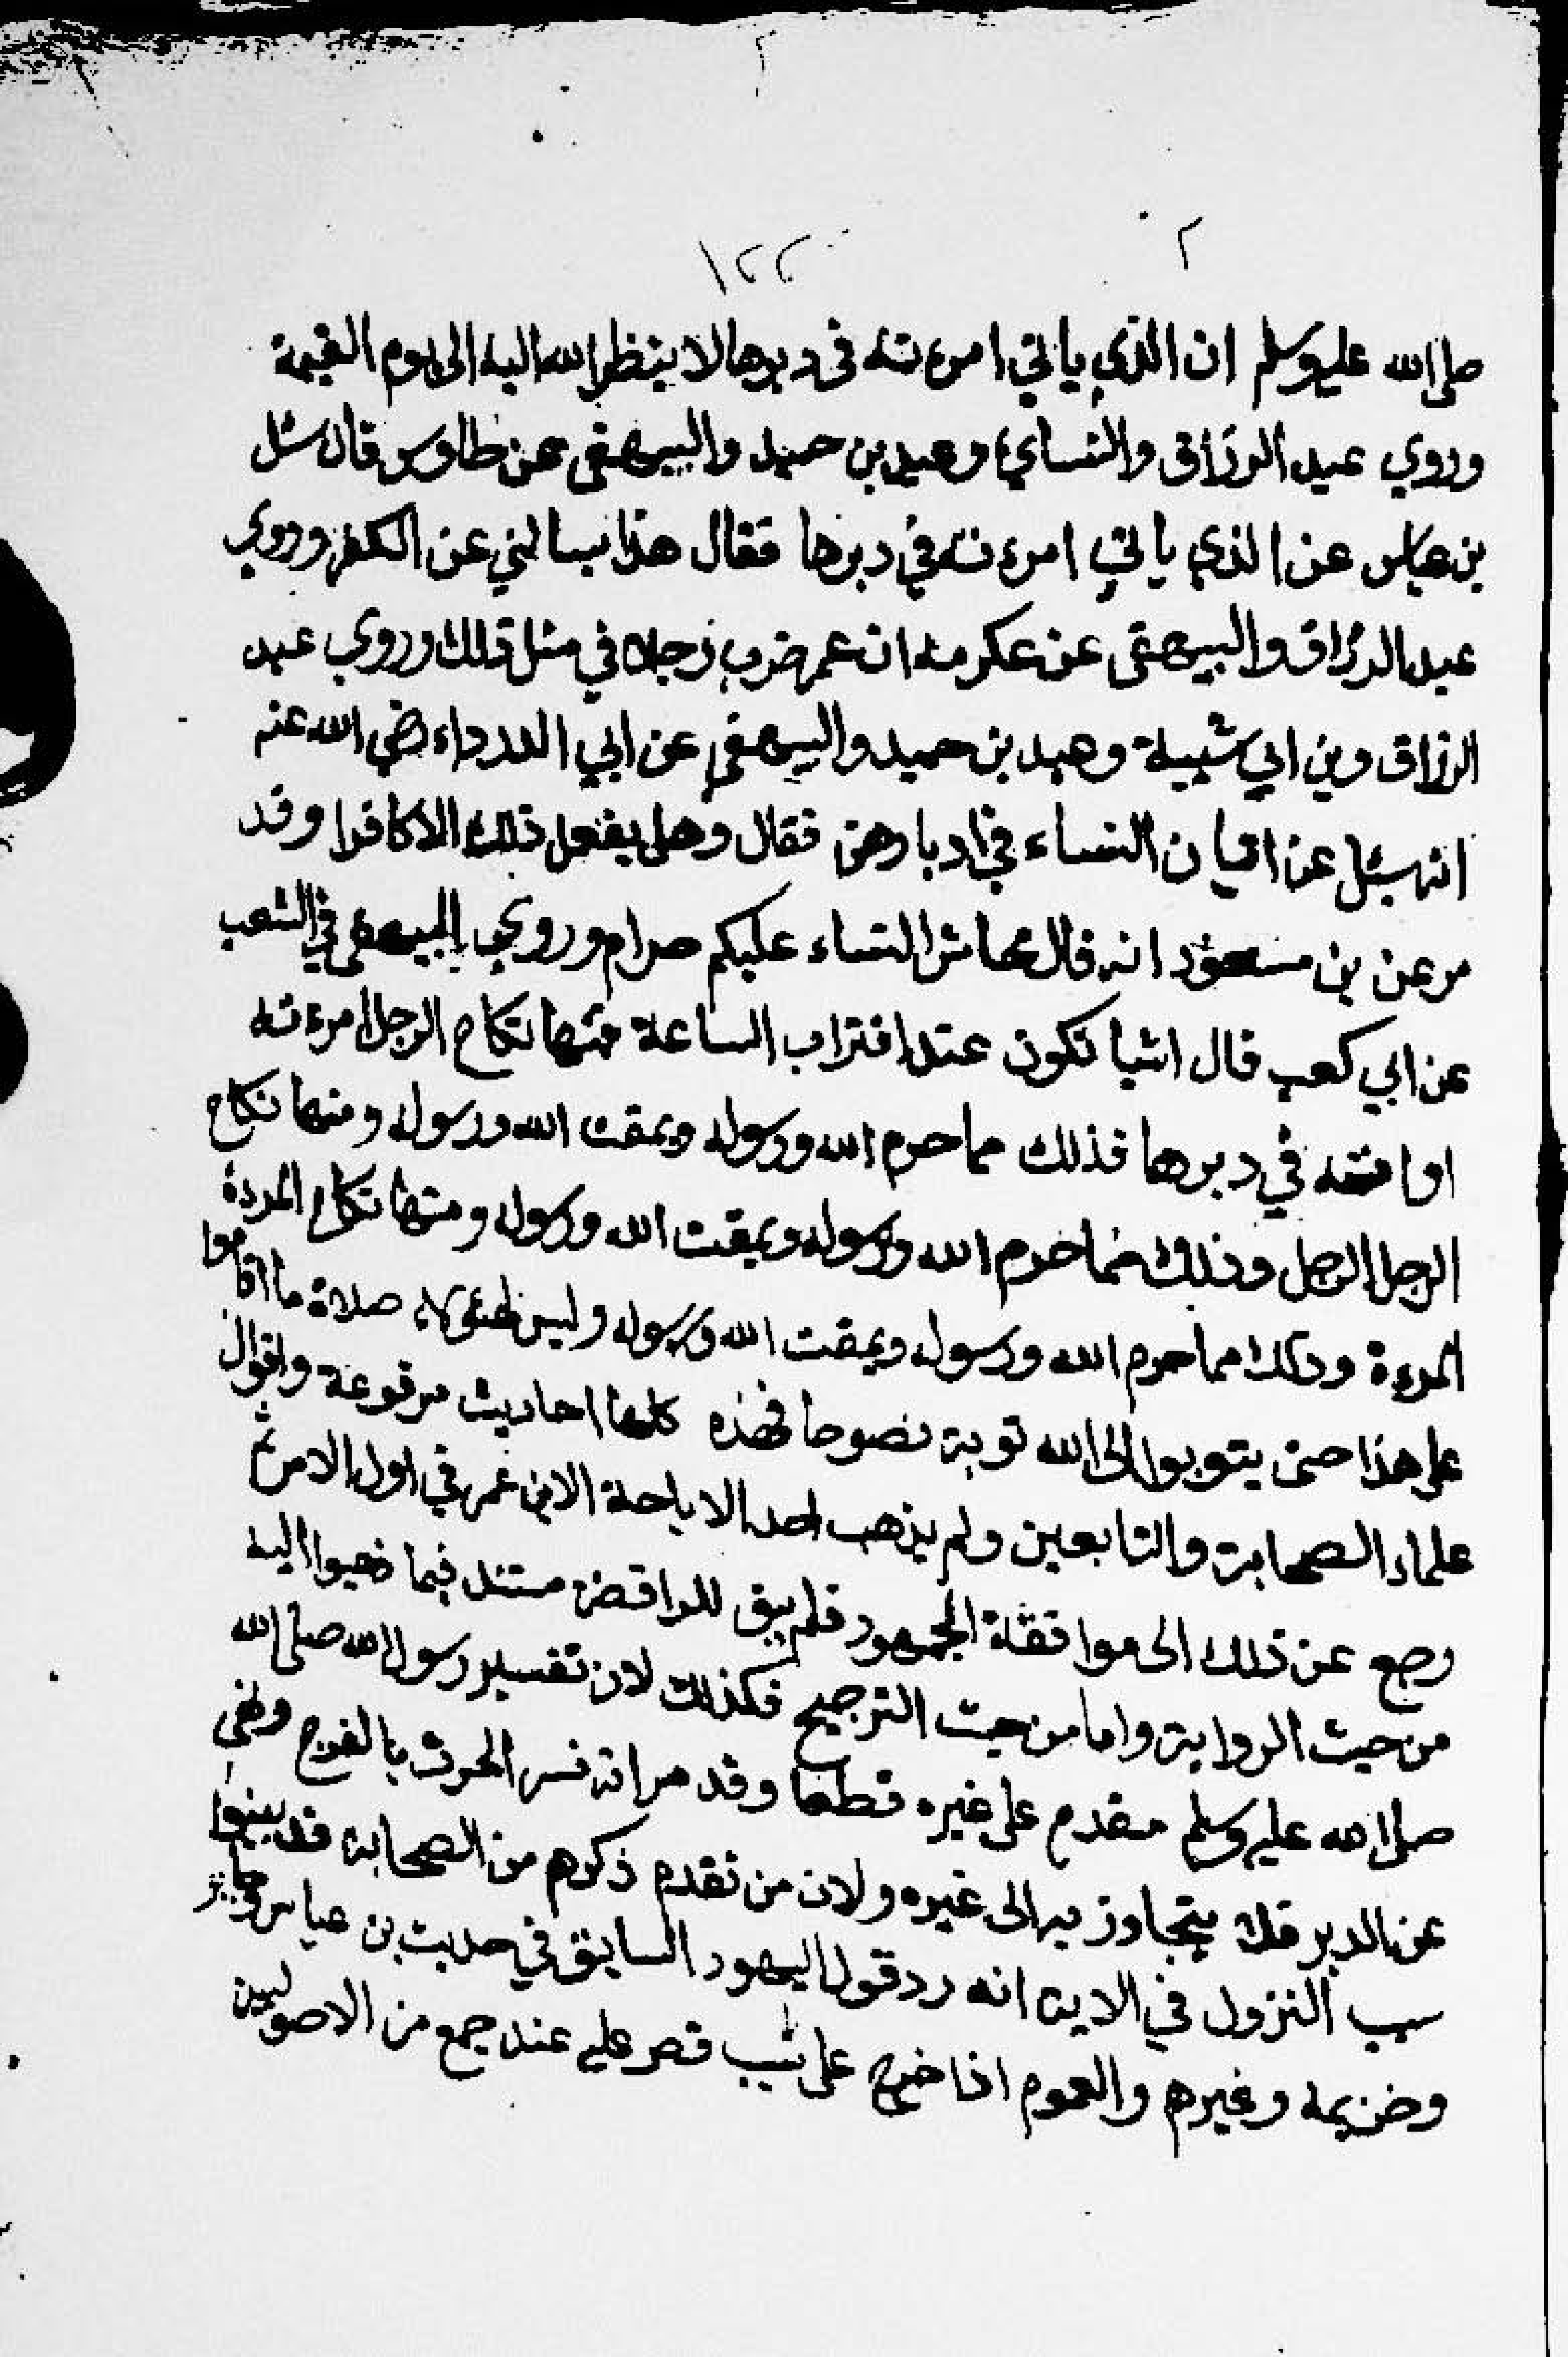 ٢
١٢٢ ٢
صلى الله عليه وسلم ان الذي ياتي امرءته في دبرها لا ينظر الله اليه الى يوم القيمة
وروي عبد الرزاق والنساي وعبد بن حميد والبيهقى عن طاوس قال سئل
بن عباس عن الذي ياتي امرءته في دبرها فقال هذا يسالني عن الكفر وروي
عبد الرزاق والبيهقى عن عكرمه ان عمر ضرب رجلا في مثل ذلك وروي عبد
الرزاق وبن ابي شيبة وعبد بن حميد والبيهقي عن ابي الدرداء رضي الله عنه
انه سئل عن اتيان النساء في ادبارهن فقال وهل يفعل ذلك الا كافرا وقد
مر عن بن مسعود انه قال محاش النساء عليكم حرام وروي البيهقى في الشعب
عن ابي كعب قال اشيا تكون عند اقتراب الساعة فمنها نكاح الرجل امرءته
او امته في دبرها فذلك مما حرم الله ورسوله ويمقت الله ورسوله ومنها نكاح
الرجل الرجل وذلك مما حرم الله ورسوله ويمقت الله ورسوله ومنها نكاح المرءة
المرءة وذلك مما حرم الله ورسوله ويمقت الله ورسوله وليس لهئولاء صلاة ما اقاموا
على هذا حتى يتوبوا الى الله توبة نصوحا فهذه كلها احاديث مرفوعة واقوال
علماء الصحابة والتابعين ولم يذهب احد الا باحة الا بن عمر في اول الامر ثم
رجع عن ذلك الى موافقة الجمهور فلم يبق للرافضة مستند فيما ذهبوا اليه
من حيث الرواية واما من حيث الترجيح فكذلك لان تفسير رسول الله صلى الله
صلى الله عليه وسلم مقدم على غيره قطعا وقد مر انه فسر الحرث بالفرج ونهى
عن الدبر فلا يتجاوز به الى غيره ولان من تقدم ذكرهم من الصحابة قد بينوا
سبب النزول في الاية انه رد قول اليهود السابق في حديث بن عباس وجابر
وخزيمة وغيرهم والعموم اذا خرج على سبب قصر عليه عند جمع من الاصوليين